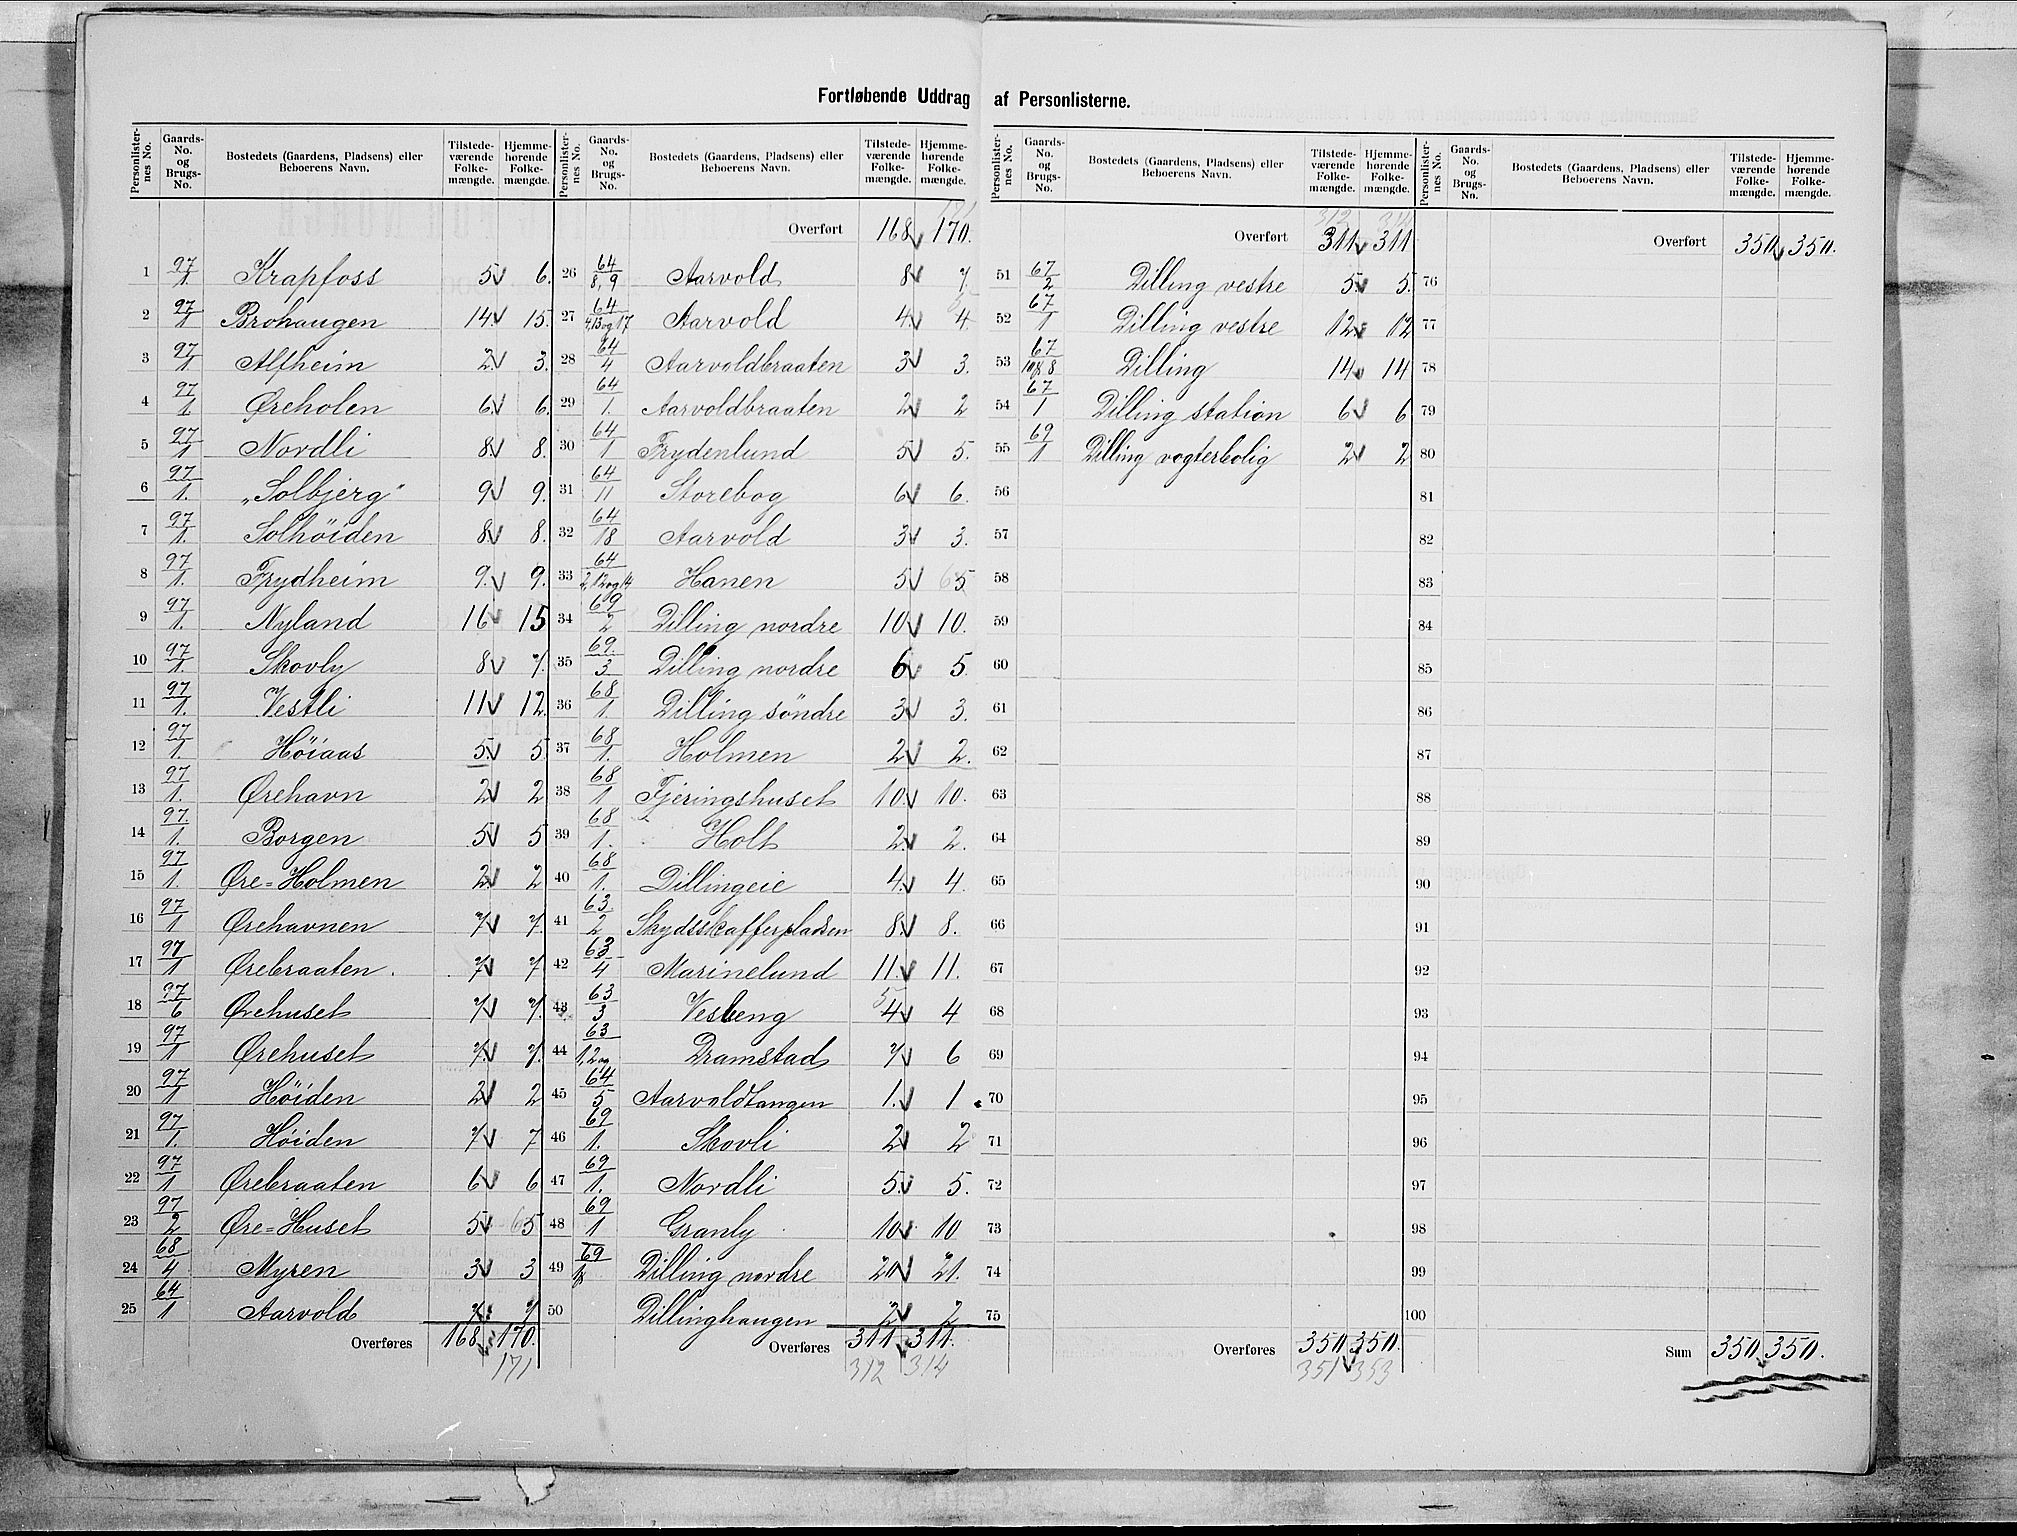 Fortløbende Uddrag af Personlisterne.
Personlister- nes No. | Gaards-No. og Brugs-No. | Bostedets (Gaardens, Pladsens) eller Beboerens Navn. | Tilstede-værende Folke-mængde. | Hjemme-hørende Folke-mængde.
1 97/1 Krapfoss 5 6.
2 97/1 Brohaugen 14 15.
3 97/1 Alfheim 2 3.
4 97/1. Øreholen 6. 6.
5 97/1 Nordli 8. 8.
6 97/1. „Solbjerg“ 9 9.
7 97/1. Solhöiden 8. 8.
8 97/1. Frydheim 9. 9.
9 97/1. Nyland 16 15
10 97/1. Skovly 8 7.
11 97/1. Vestli 11 12
12 97/1. Höiaas 5. 5
13 97/1. Ørehavn 2 2
14 97./1. Borgen 5 5
15 97/1. Øre=Holmen 2 2
16 97/1 Ørehavnen 7 7.
17 97/1 Ørebraaten. 7 7.
18 97/6 Ørehuset 7 7.
19 97/1 Ørehuset 7. 7.
20 97/1 Höiden 2 2
21 97/1. Höiden 7 7
22 97/1 Ørebraaten 6 6
23 97/2 Øre=Huset 5 5
24 68/4 Myren 3 3
25 64/1 Aarvold 7. 7
Overføres 168 170.
171
Personlister- nes No. | Gaards-No. og Brugs-No. | Bostedets (Gaardens, Pladsens) eller Beboerens Navn. | Tilstede-værende Folke-mængde. | Hjemme-hørende Folke-mængde.
Overført 168 170.
26 64/8, 9 Aarvold 8 7.
27 64/4, 13 og 17 Aarvold 4. 4.
28 64/4 Aarvoldbraaten 3 3.
29 64/1. Aarvoldbraaten 2 2
30 64/1 Frydenlund 5 5.
31 64/11 Storebog 6 6.
32 64/18 Aarvold 3 3.
33 64/2, 12 og 14 Hanen 5 5
34 69/2 Dilling nordre 10 10.
35 69./3 Dilling nordre 6 5.
36 68/1. Dilling söndre 3 3.
37 68/1. Holmen 2 2.
38 68/1 Fjeringshuset 10. 10.
39 68/1. Holt 2. 2.
40 68/1. Dillingeie 4. 4.
41 63./2 Skydsskafferpladsen 8. 8.
42 63/4 Marinelund 11. 11.
43 63/3 Vesleng 4 4
44 63/1, 2 og Dramstad 7 6
45 64/5 Aarvoldtangen 1. 1
46 69/1. Skovli 2 2
47 69/1. Nordli 5. 5.
48 69/1 Granly 10 10
49 69/18 Dilling nordre 20 21.
50 Dillinghaugen 2 2
Overføres 311 311.
312 314
Personlister- nes No. | Gaards-No. og Brugs-No. | Bostedets (Gaardens, Pladsens) eller Beboerens Navn. | Tilstede-værende Folke-mængde. | Hjemme-hørende Folke-mængde.
312 314
Overført 311 311
51 67/2 Dilling vestre 5. 5.
52 67/1 Dilling vestre 12. 12
53 67/ 8 Dilling 14 14
54 67/1 Dilling station 6 6
55 69/1 Dilling vogterbolig 2 2
56
57
58
59
60
61
62
63
64
65
66
67
68
69
70
71
72
73
74
75
Overføres 350 350.
351 353
Personlister- nes No. | Gaards-No. og Brugs-No. | Bostedets (Gaardens, Pladsens) eller Beboerens Navn. | Tilstede-værende Folke-mængde. | Hjemme-hørende Folke-mængde.
Overført 350 350.
76
77
78
79
80
81
82
83
84
85
86
87
88
89
90
91
92
93
94
95
96
97
98
99
100
Sum 350 350.